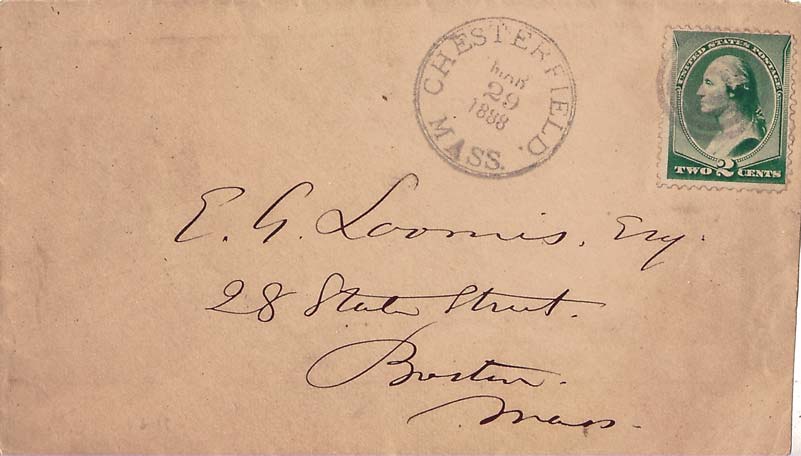 CHESTERFIELD.
MAR
29
1888
MASS.
UNITED STATES POSTAGE
TWO 2 CENTS
E. G. Loomis. Esq.
28 State Street.
Boston.
Mass.